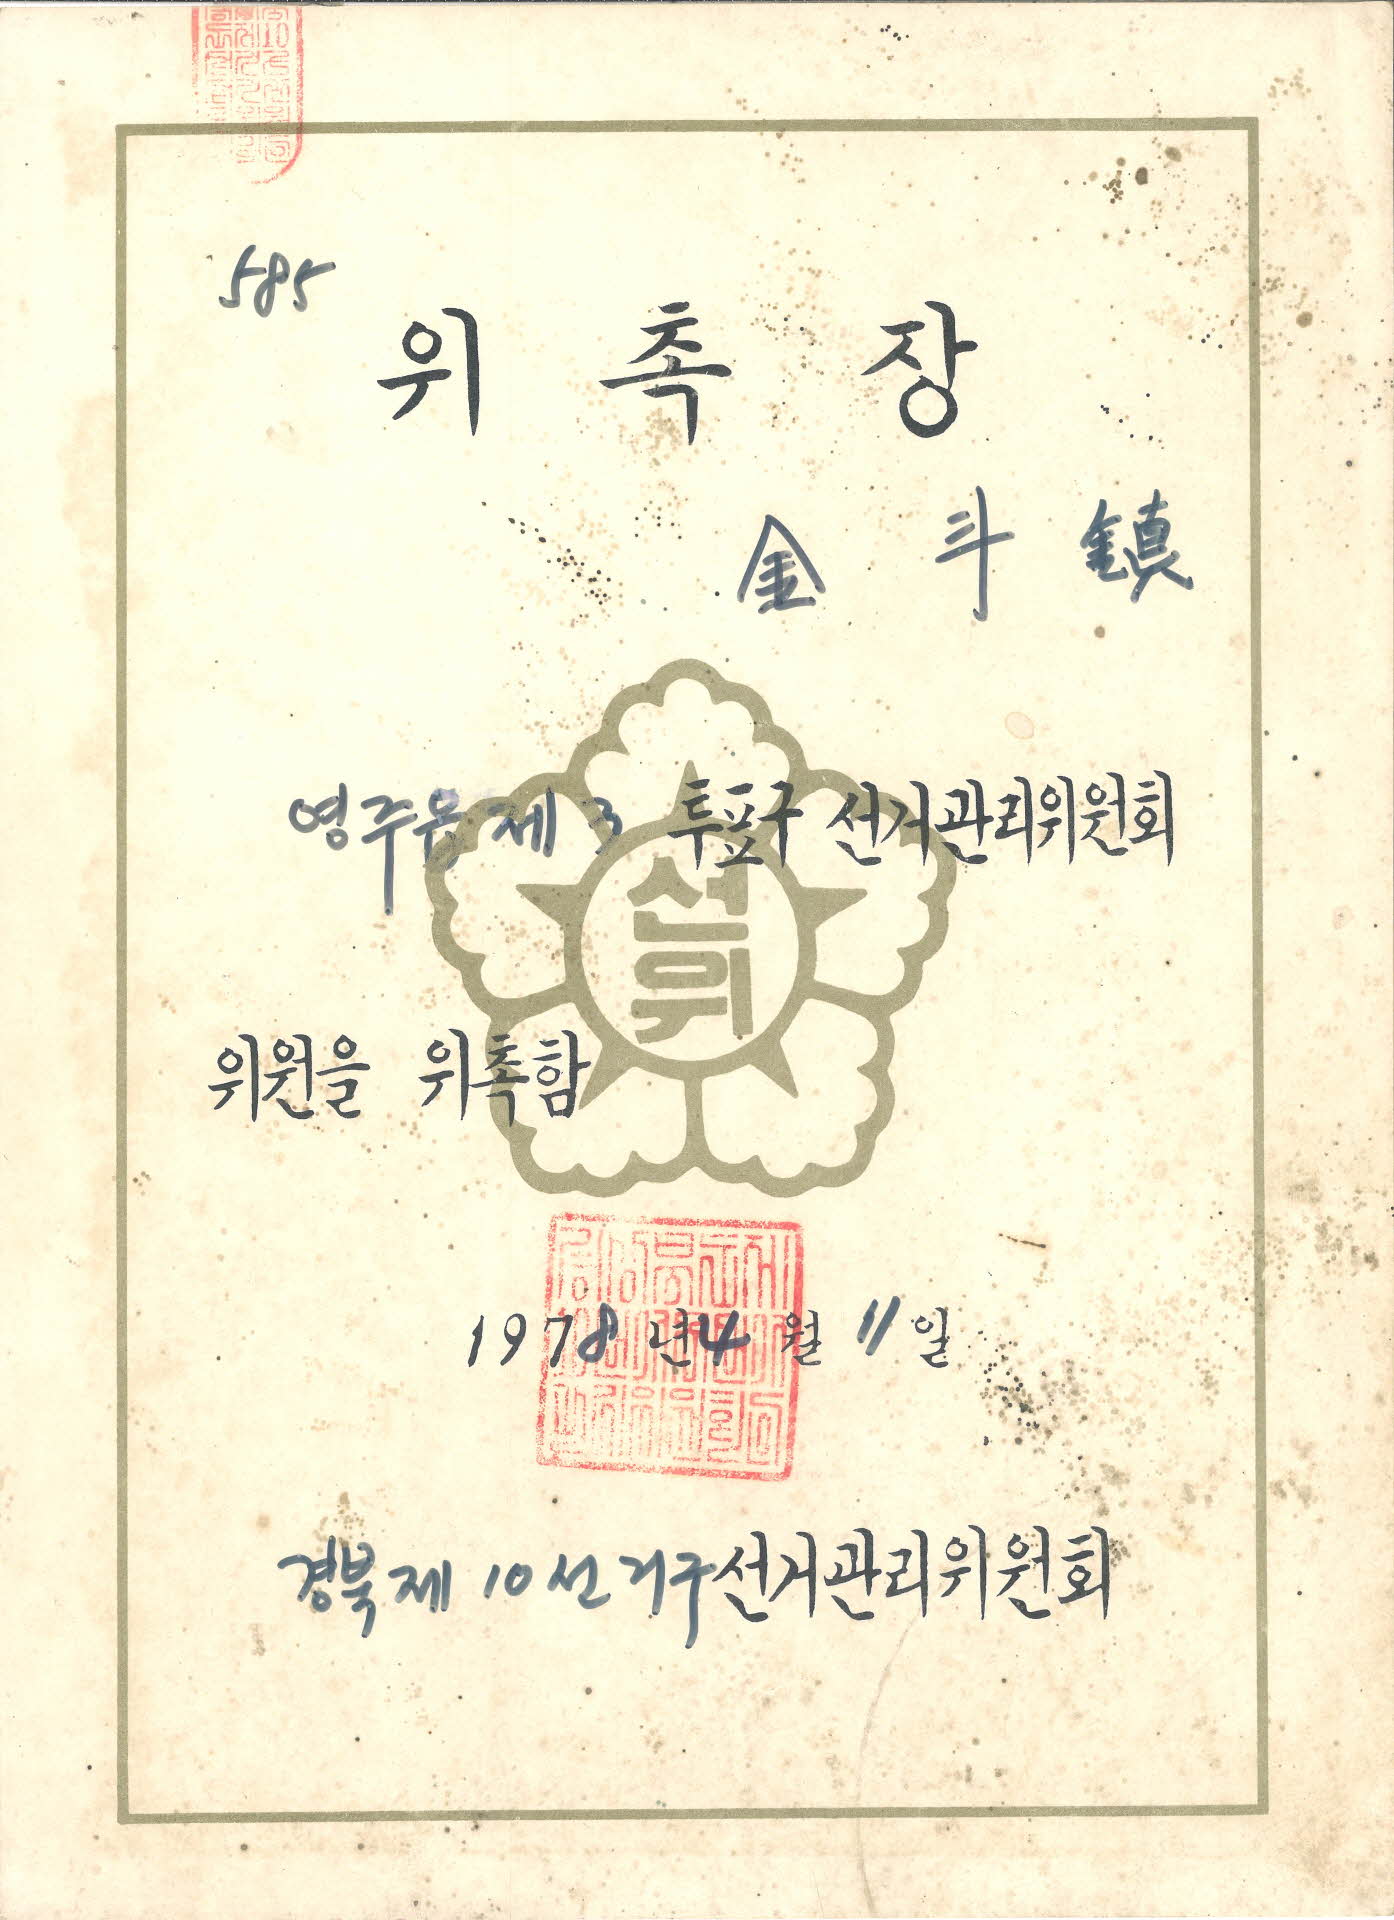 585
위 촉 장
金 斗 鎭
영주읍 제 3 투표구 선거관리위원회
선위
위원을 위촉함
1978년 4월 11일
경북 제 10 선거구 선거관리위원회